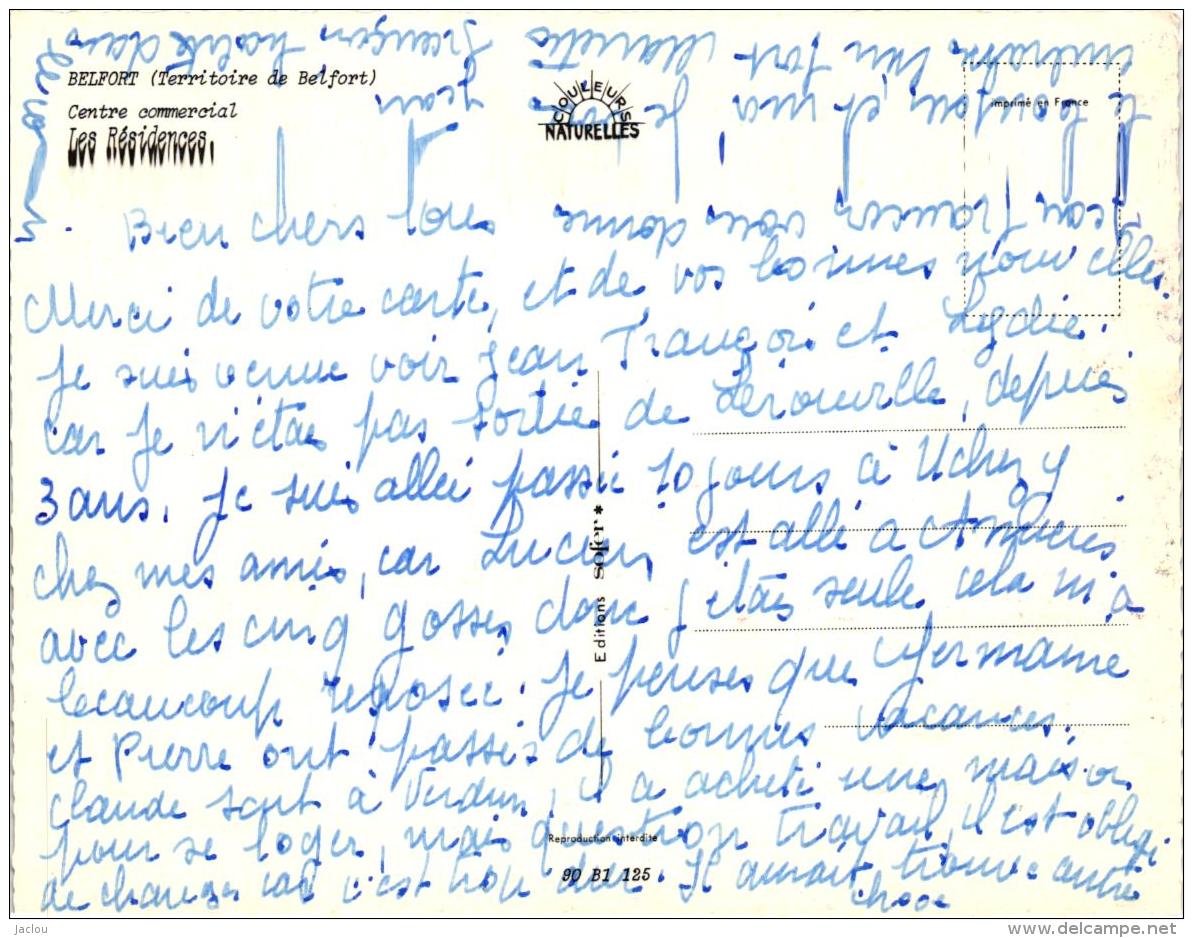 BELFORT (Territoire de Belfort)
Centre commercial
Les Résidences.
COULEURS
NATURELLES
Imprimé en France
Bien chers tous
Merci de votre carte, et de vos bonnes nouvelles.
Je suis venue voir Jean François et Lydie.
car je n'étais pas sortie de Lérouville, depuis
3 ans. Je suis allée passée 10 jours à Uchizy
chez mes amis, car Lucien est allé a
avec les cinq gosses, donc j'étais seule cela m'a
beaucoup reposée. Je penses que Germaine
et Pierre ont passés de bonnes vacances.
Claude sont à Verdun, il a acheté une maison
pour se loger, mais question travail, il est obligé
de changer car c'est trop dur. Il aurait trouvé autre
chose
Jean François vous donne
le bonjour, et moi je
embrasse bien fort
Jean
Editions Sofer *
Reproduction interdite
90 B1 125
jaclou
http://www.delcampe.net